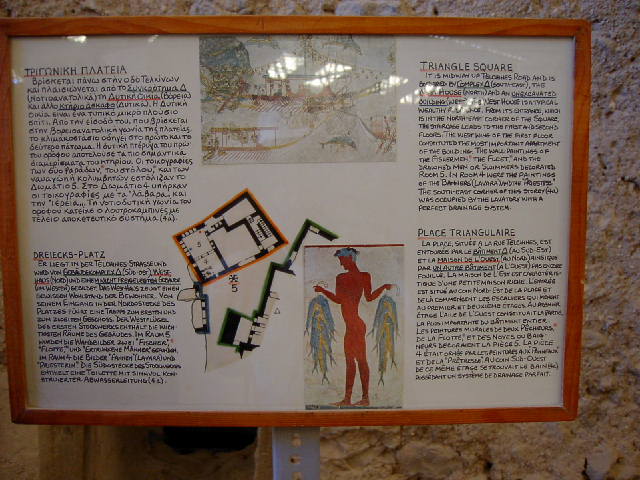 ΤΡΙΓΩΝΙΚΗ ΠΛΑΤΕΙΑ
Βρίσκεται πάνω στην οδό Τελχίνων
και πλαισιώνεται από το Συγκρότημα Δ
(Νοτιοανατολικά) τη Δυτική Οικία (Βόρεια)
και άλλο κτήριο άσκαφο (Δυτικά). Η Δυτική
Οικία είναι ένα τυπικό μικρό πλούσιο
σπίτι. Από την είσοδό του, που βρίσκεται
στην βορειοανατολική γωνία της πλατείας,
το κλιμακοστάσιο οδηγεί στο πρώτο και το
δεύτερο πάτωμα. Η δυτική πτέρυγα του πρώ
του ορόφου αποτελούσε τα πιο σημαντικά
διαμερίσματα του κτηρίου. Οι τοιχογραφίες
των δύο ψαράδων, του στόλου, και των
ναυαγών ή κολυμβητών εστόλιζαν το
Δωμάτιο 5. Στο Δωμάτιο 4 υπήρχαν
οι τοιχογραφίες με τα "λάβαρα", και
την "ιέρεια". Τη νοτιοδυτική γωνία του
ορόφου κατείχε ο λουτροκαμπινές με
τέλειο αποχετευτικό σύστημα (4α).
DREIECKS-PLATZ
ER LIEGT IN DER TELCHINES STRASSE UND
WIRD VOM GEBÄUDEKOMPLEX Δ (SÜD-OST), WEST-
HAUS (NORD) UND EINEM NICHT FREIGELEGTEN GEBÄUDE
(IM WESTEN) GEBILDET. DAS WESTHAUS ZEUGT EINEN
GEWISSEN WOHLSTAND DER BEWOHNER. VON
SEINEM EINGANG IN DER NORDOSTECKE DES
PLATZES FÜHRT EINE TREPPE ZUM ERSTEN UND
ZUM ZWEITEN GESCHOSS. DER WESTFLÜGEL
DES ERSTEN STOCKWERKS ENTHÄLT DIE WICH-
TIGSTEN RÄUME DES GEBÄUDES. IM RAUM 5
WURDEN DIE WANDBILDER ZWEI "FISCHER",
"FLOTTE", UND "ERTRUNKENE MÄNNER" GEFUNDEN,
IM RAUM 4 DIE BILDER "FAHNEN" (LAVARA) UND
"PRIESTERIN". DIE SÜDWESTECKE DES STOCKWERKS
ENTHIELT EINE TOILETTE MIT SINNVOLL KON-
STRUIERTER ABWASSERLEITUNG (4a).
5
4
5
Δ
TRIANGLE SQUARE
IT IS MIDWAY UP TELCHINES ROAD AND IS
BOUNDED BY COMPLEX Δ (SOUTH-EAST), THE
WEST HOUSE (NORTH) AND AN UNEXCAVATED
BUILDING (WEST). THE WEST HOUSE IS A TYPICAL
WEALTHY RESIDENCE. FROM ITS ENTRANCE, WHICH
IS IN THE NORTH-EAST CORNER OF THE SQUARE,
THE STAIRCASE LEADS TO THE FIRST AND SECOND
FLOORS. THE WEST WING OF THE FIRST FLOOR
CONSTITUTED THE MOST IMPORTANT APARTMENT
OF THE BUILDING. THE WALL PAINTINGS OF
THE "FISHERMEN," THE "FLEET," AND THE
DROWNED MEN OR SWIMMERS DECORATED
ROOM 5. IN ROOM 4 WERE THE PAINTINGS
OF THE BANNERS (LAVARA) AND THE "PRIESTESS."
THE SOUTH-EAST CORNER OF THIS STOREY (4a)
WAS OCCUPIED BY THE LAVATORY WITH A
PERFECT DRAINAGE SYSTEM.
PLACE TRIANGULAIRE
LA PLACE, SITUÉE À LA RUE TELCHINES, EST
ENTOURÉE PAR LE BÂTIMENT Δ (AU SUD-EST)
ET LA MAISON DE L'OUEST (AU NORD) AINSI QUE
PAR UN AUTRE BÂTIMENT (À L'OUEST) PAS ENCORE
FOUILLÉ. LA MAISON DE L'EST EST CARACTÉRIS-
TIQUE D'UNE PETITE MAISON RICHE. L'ENTRÉE
EST SITUÉE AU COIN NORD-EST DE LA PLACE ET
DE LÀ COMMENCENT LES ESCALIERS QUI MÈNENT
AU PREMIER ET DEUXIÈME ÉTAGES. AU PREMIER
ÉTAGE L'AILE DE L'OUEST CONSTITUAIT LA PARTIE
LA PLUS IMPORTANTE DU BÂTIMENT ENTIER.
LES PEINTURES MURALES DE DEUX "PÊCHEURS,"
DE LA "FLOTTE", ET DES NOYÉS OU BAIG-
NEURS DÉCORAIENT LA PIÈCE 5. LA PIÈCE
4 ÉTAIT ORNÉE PAR LES PEINTURES AUX PANNEAUX
ET DE LA "PRÊTRESSE". AU COIN SUD-OUEST
DE CE MÊME ÉTAGE SE TROUVAIT LE BAIN (4a)
POSSÉDANT UN SYSTÈME DE DRAINAGE PARFAIT.